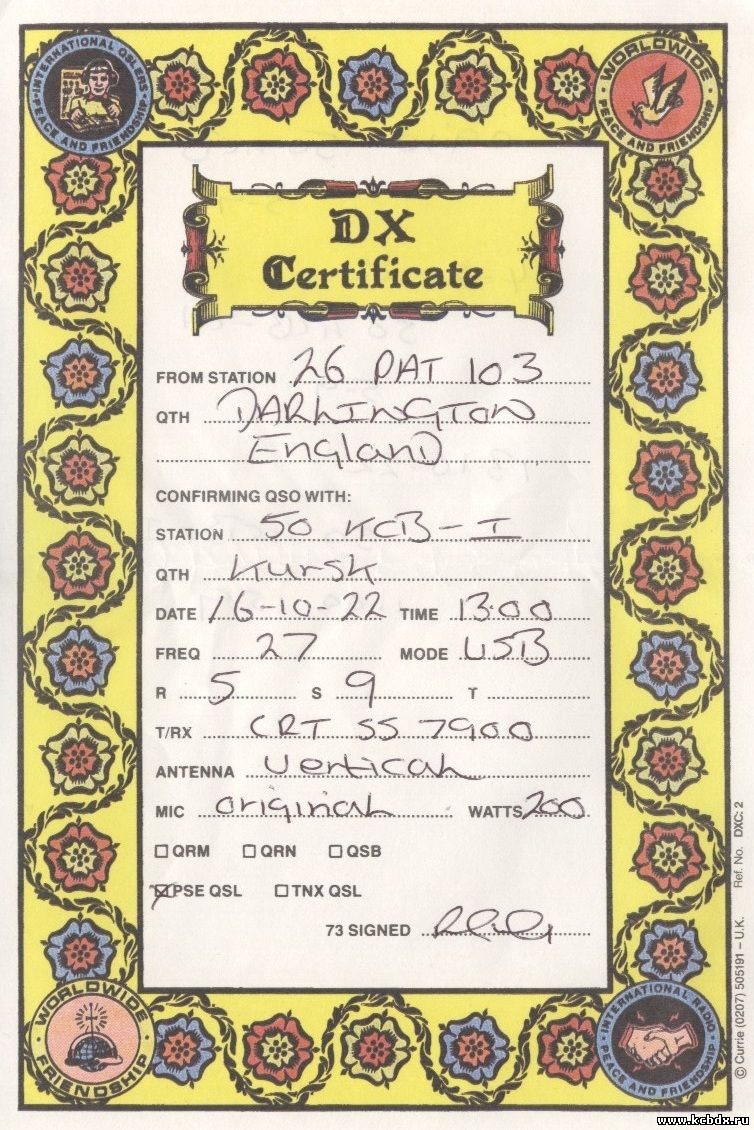 INTERNATIONAL QSLERS
PEACE AND FRIENDSHIP
WORLDWIDE
PEACE AND FRIENDSHIP
DX
Certificate
FROM STATION 26 PAT 103
QTH DARLINGTON
England
CONFIRMING QSO WITH:
STATION 50 KCB-I
QTH Kursk
DATE 16-10-22 TIME 13:00
FREQ 27 MODE USB
R 5 S 9 T
T/RX CRT SS 7900
ANTENNA Vertical
MIC original WATTS 200
QRM QRN QSB
PSE QSL TNX QSL
73 SIGNED
WORLDWIDE
FRIENDSHIP
INTERNATIONAL RADIO
PEACE AND FRIENDSHIP
© Currie (0207) 505191 – U.K. Ref. No. DXC: 2
www.kcbdx.ru